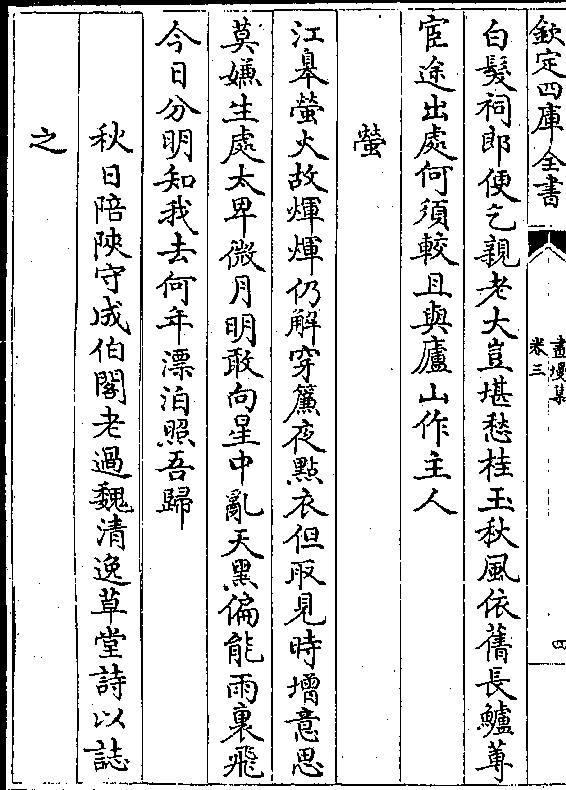 欽定四庫全書
畫墁集
卷三
四
白髮祠郎便乞親老大豈堪愁桂玉秋風依舊長鱸蓴
宦途出處何須較且與廬山作主人
螢
江臯螢火故煇煇仍解穿簾夜點衣但取見時增意思
莫嫌生處太卑微月明敢向星中亂天黑偏能雨裏飛
今日分明知我去何年漂泊照吾歸
秋日陪陝守成伯閣老過魏清逸草堂詩以誌
之